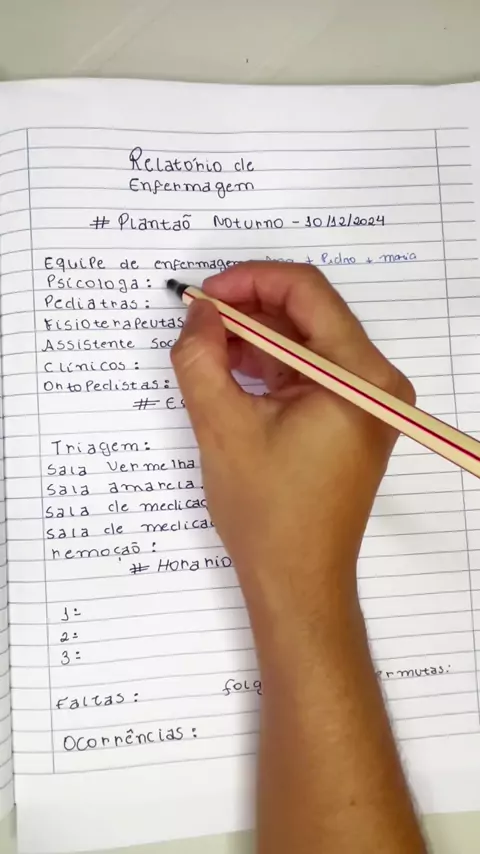 Relatório de
Enfermagem
# Plantaõ Noturno - 10/12/2024
Equipe de enfermagem + Pedro + maria
Psicologa:
Pediatras:
Fisioterapeutas
Assistente Soc
Clínicos:
Ortopedistas:
# Es
Triagem:
Sala Vermelha
Sala amarela.
Sala de medicaç
Sala de medicaç
remoçaõ:
# Horario
1:
2:
3:
Faltas: folg rmutas:
Ocorrências: